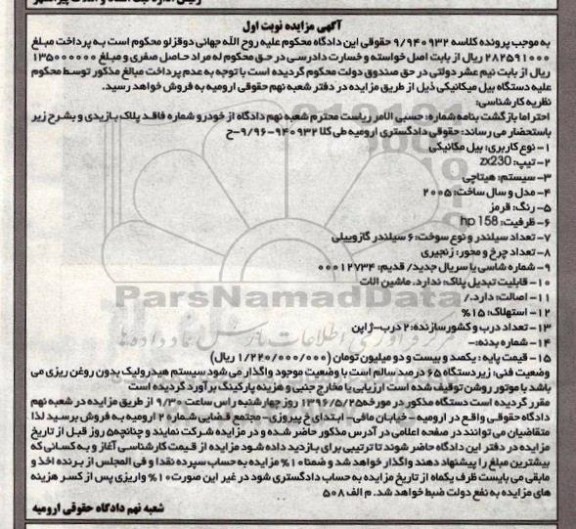 آگهی مزایده نوبت اول
به موجب پرونده کلاسه ۹/۹۴۰۹۳۲ حقوقی این دادگاه محکوم علیه روح الله جهانی دوقزلو محکوم است به پرداخت مبلغ
۲۸۲۵۹۱۰۰۰ ریال از بابت اصل خواسته و خسارت دادرسی در حق محکوم له مراد حاصل صفری و مبلغ ۱۳۵۰۰۰۰۰
ریال از بابت نیم عشر دولتی در حق صندوق دولت محکوم گردیده است با توجه به عدم پرداخت مبالغ مذکور توسط محکوم
علیه دستگاه بیل میکانیکی ذیل از طریق مزایده در دفتر شعبه نهم حقوقی ارومیه به فروش خواهد رسید.
نظریه کارشناسی:
احتراما بازگشت بنامه شماره: حسبی الامر ریاست محترم شعبه نهم دادگاه از خودرو شماره فاقد پلاک بازیدی و بشرح زیر
باستحضار می رساند: حقوقی دادگستری ارومیه طی کلا ۹۴۰۹۳۲-۹/۹۶-ح
۱- نوع کاربری: بیل مکانیکی
۲- تیپ: zx230
۳- سیستم: هیتاچی
۴- مدل و سال ساخت: ۲۰۰۵
۵- رنگ: قرمز
۶- ظرفیت: 158 hp
۷- تعداد سیلندر و نوع سوخت: ۶ سیلندر گازوییلی
۸- تعداد چرخ و محور: زنجیری
۹- شماره شاسی یا سریال جدید/ قدیم: ۰۰۰۱۲۷۳۴
۱۰- قابلیت تبدیل پلاک: ندارد. ماشین الات
۱۱- اصالت: دارد./
۱۲- استهلاک: ۱۵%
۱۳- تعداد درب و کشور سازنده: ۲ درب-ژاپن
۱۴- شماره بدنه:-
۱۵- قیمت پایه : یکصد و بیست و دو میلیون تومان (۱/۲۲۰/۰۰۰/۰۰۰ ریال)
وضعیت فنی: زیر دستگاه ۶۵ درصد سالم است با وضعیت موجود واگذار می شود سیستم هیدرولیک بدون روغن ریزی می
باشد با موتور روشن توقیف شده است ارزیابی با مخارج جنبی و هزینه پارکینگ برآورد گردیده است
مقرر گردیده است دستگاه مذکور در مورخه ۱۳۹۶/۵/۲۵ روز چهارشنبه راس ساعت ۹/۳۰ از طریق مزایده در شعبه نهم
دادگاه حقوقی واقع در ارومیه - خیابان مافی- ابتدای خ پیروزی- مجتمع قضایی شماره ۲ ارومیه به فروش برسید لذا
متقاضیان می توانند در صفحه اعلامی در آدرس مذکور حاضر شده و در مزایده شرکت نمایند و چنانچه ۵ روز قبل از تاریخ
مزایده در دفتر این دادگاه حاضر شوند تا ترتیبی برای بازدید داده شود مزایده از قیمت کارشناسی آغاز و به کسانی که
بیشترین مبلغ را پیشنهاد دهند واگذار خواهد شد و ضمنا ۱۰% مزایده به حساب سپرده نقدا و فی المجلس از برنده اخذ و
مابقی می بایست ظرف یکماه از تاریخ مزایده به حساب دادگستری شود در غیر این صورت ۱۰% واریزی پس از کسر هزینه
های مزایده به نفع دولت ضبط خواهد شد. م الف ۵۰۸
شعبه نهم دادگاه حقوقی ارومیه
ParsNamadData